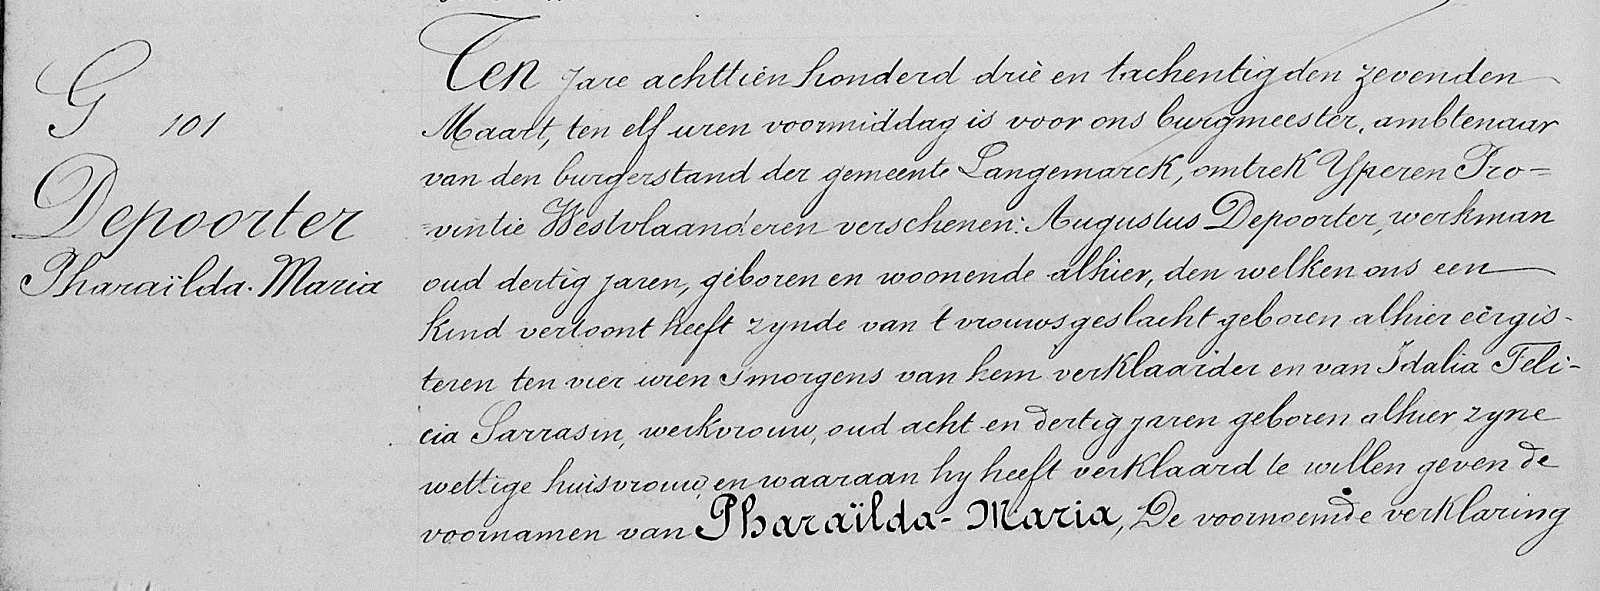 G 101
Depoorter
Pharaïlda-Maria
Ten jare achttien honderd drie en tachentig den zevenden
Maart, ten elf uren voormiddag is voor ons burgmeester, ambtenaar
van den burgerstand der gemeente Langemarck, omtrek Yperen Pro=
=vintie Westvlaanderen verschenen: Augustus Depoorter, werkman
oud dertig jaren, geboren en woonende alhier, den welken ons een
kind vertoont heeft zynde van t vrouwsgeslacht geboren alhier eergis-
teren ten vier uren s'morgens van hem verklaarder en van Idalia Feli-
cia Sarrasin, werkvrouw, oud acht en dertig jaren geboren alhier zyne
wettige huisvrouw, en waaraan hy heeft verklaard te willen geven de
voornamen van Pharaïlda-Maria, De voornoemde verklaring